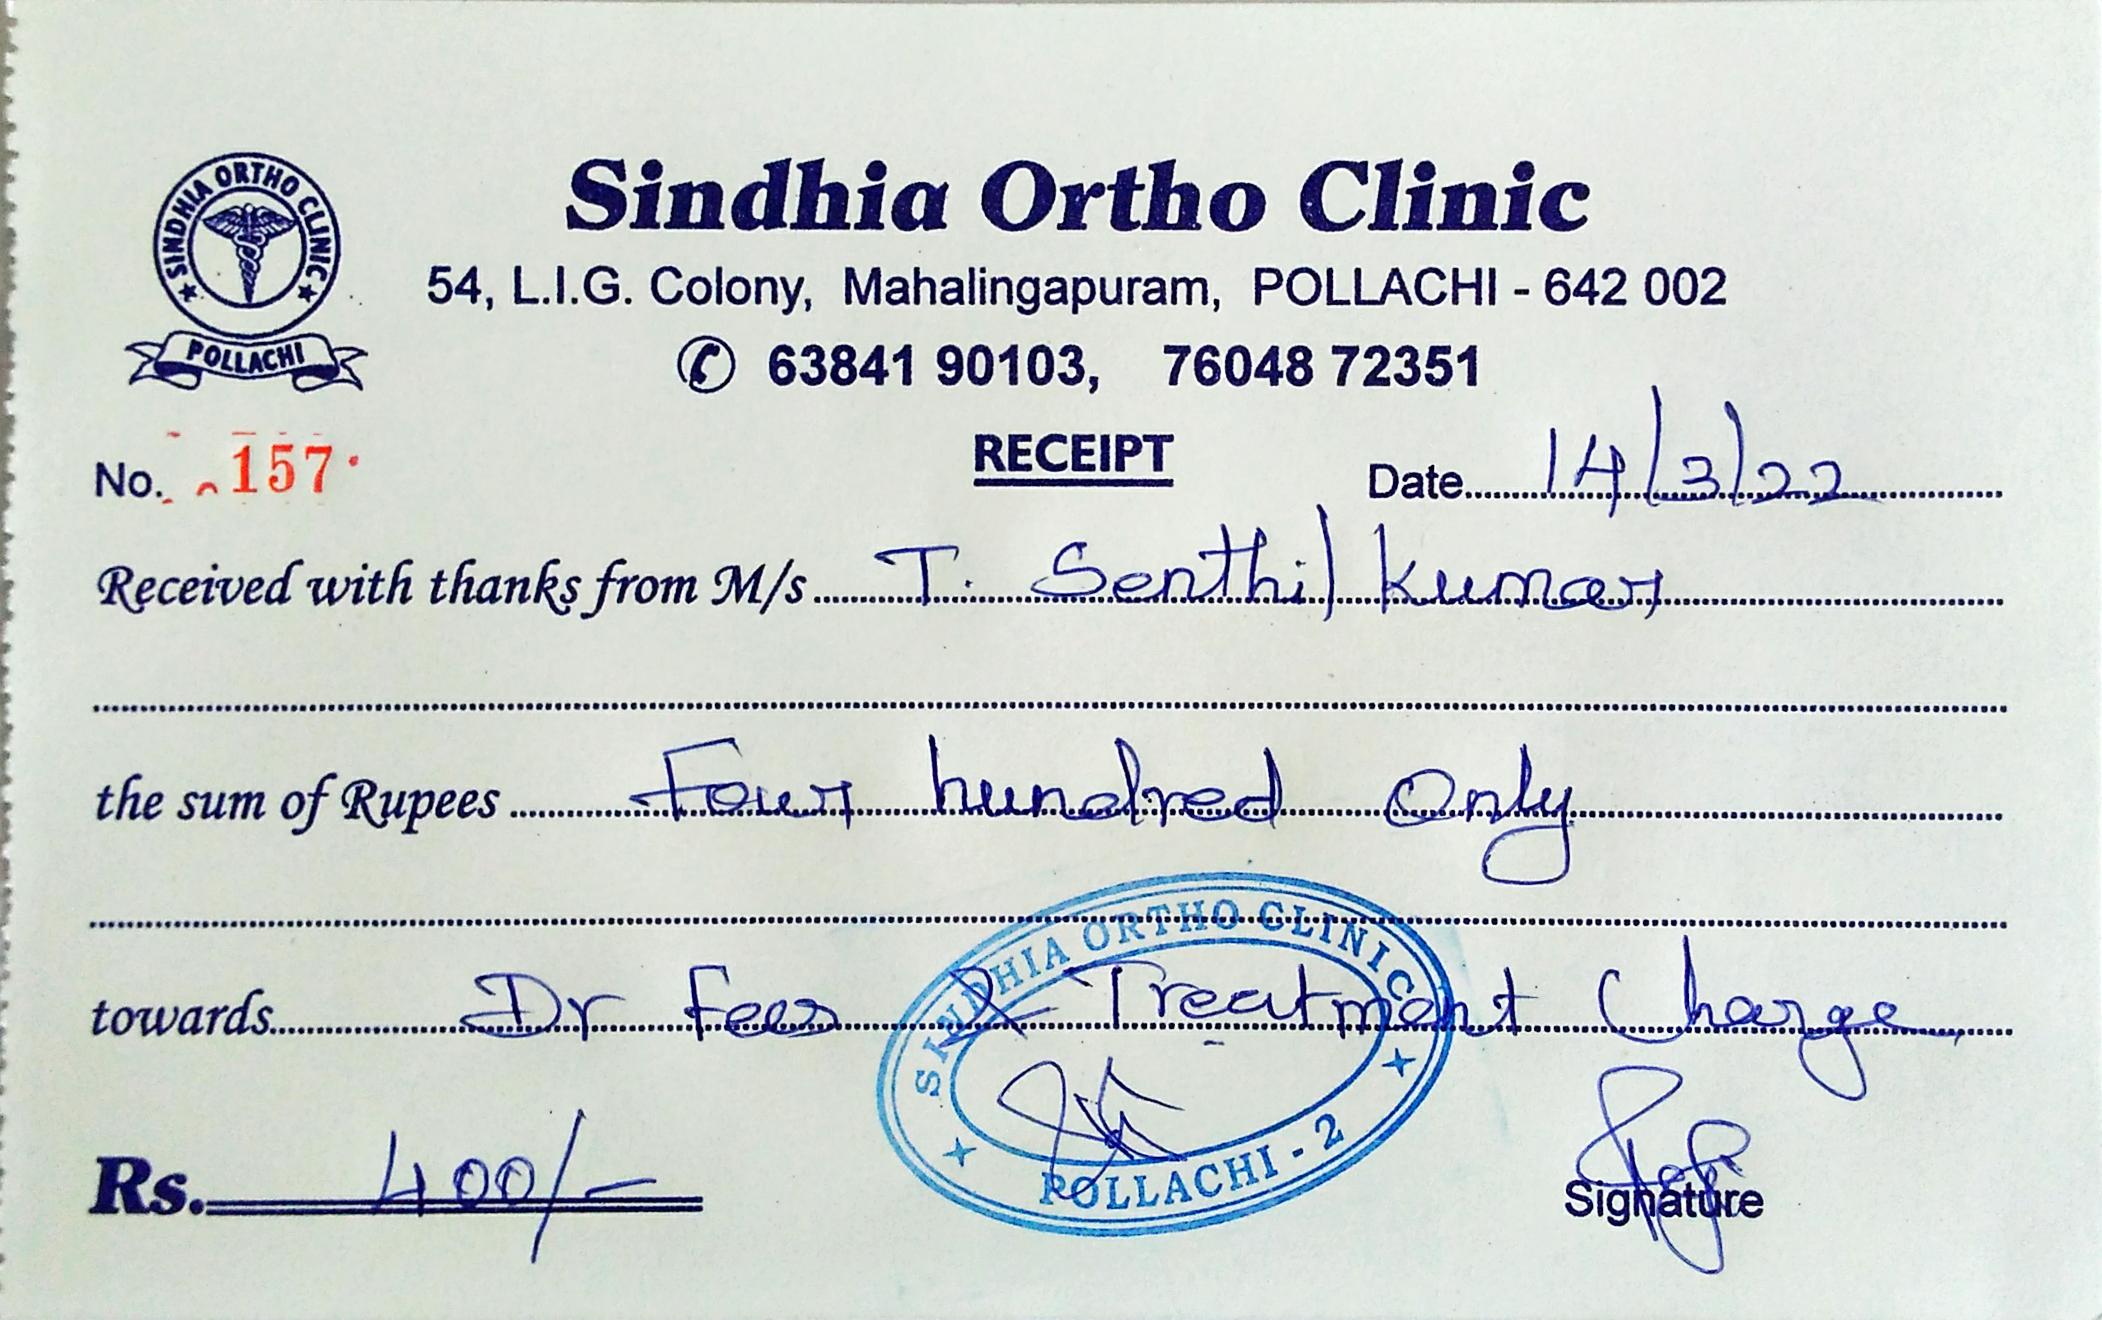 SINDHIA ORTHO CLINIC
POLLACHI
Sindhia Ortho Clinic
54, L.I.G. Colony, Mahalingapuram, POLLACHI - 642 002
63841 90103, 76048 72351
RECEIPT
No. 157
Date 14/3/22
Received with thanks from M/s T. Senthil kumar
the sum of Rupees Four hundred Only
towards Dr Fees & Treatment Charge
SINDHIA ORTHO CLINIC
POLLACHI - 2
Rs. 400/-
Signature